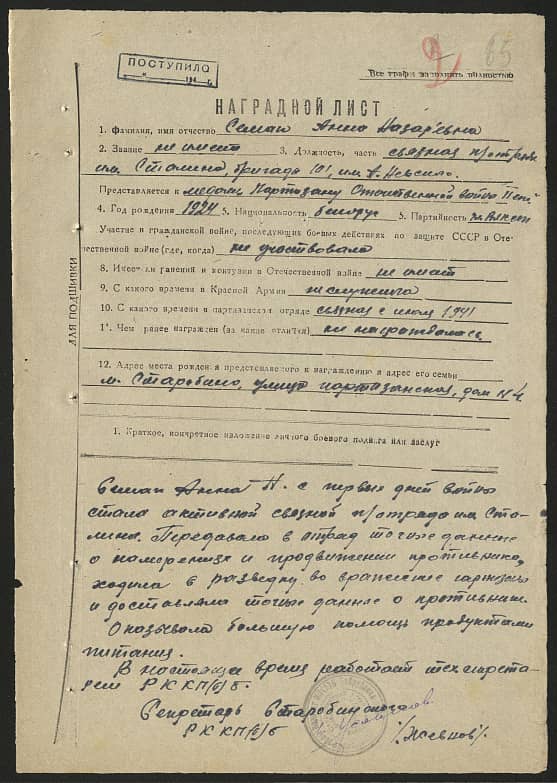 ПОСТУПИЛО
"  " 194  г.
65
Все графы заполнять полностью
НАГРАДНОЙ ЛИСТ
1. Фамилия, имя отчество Семак Анна Назарьевна
2. Звание не имеет 3. Должность, часть связная п/отряда
им. Сталина, бригада 101, им. А. Невского.
Представляется к медали „Партизану Отечественной войны" II степ.
4. Год рождения 1924 5. Национальность белорус 5. Партийность чл. ВЛКСМ
Участие в гражданской войне, последующих боевых действиях по защите СССР в Оте-
чественной войне (где, когда) не участвовала
8. Имеет ли ранения и контузии в Отечественной войне не имеет
9. С какого времени в Красной Армии не служила
10. С какого времени в партизанском отряде связная с июля 1941
11. Чем ранее награжден (за какие отличия) не награждалась
12. Адрес места рождения представляемого к награждению и адрес его семьи
м. Старобино, улица партизанская, дом № 4.
ДЛЯ ПОДШИВКИ
1. Краткое, конкретное изложение личного боевого подвига или заслуг
Семак Анна Н. с первых дней войны
стала активной связной п/отряда им. Ста-
лина. Передавала в отряд точные данные
о намерениях и продвижении противника,
ходила в разведку во вражеские гарнизоны
и доставляла точные данные о противнике.
Оказывала большую помощь продуктами
питания.
В настоящее время работает техсекрета-
рем РК КП/б/Б.
Секретарь Старобинского
РК КП/б/Б